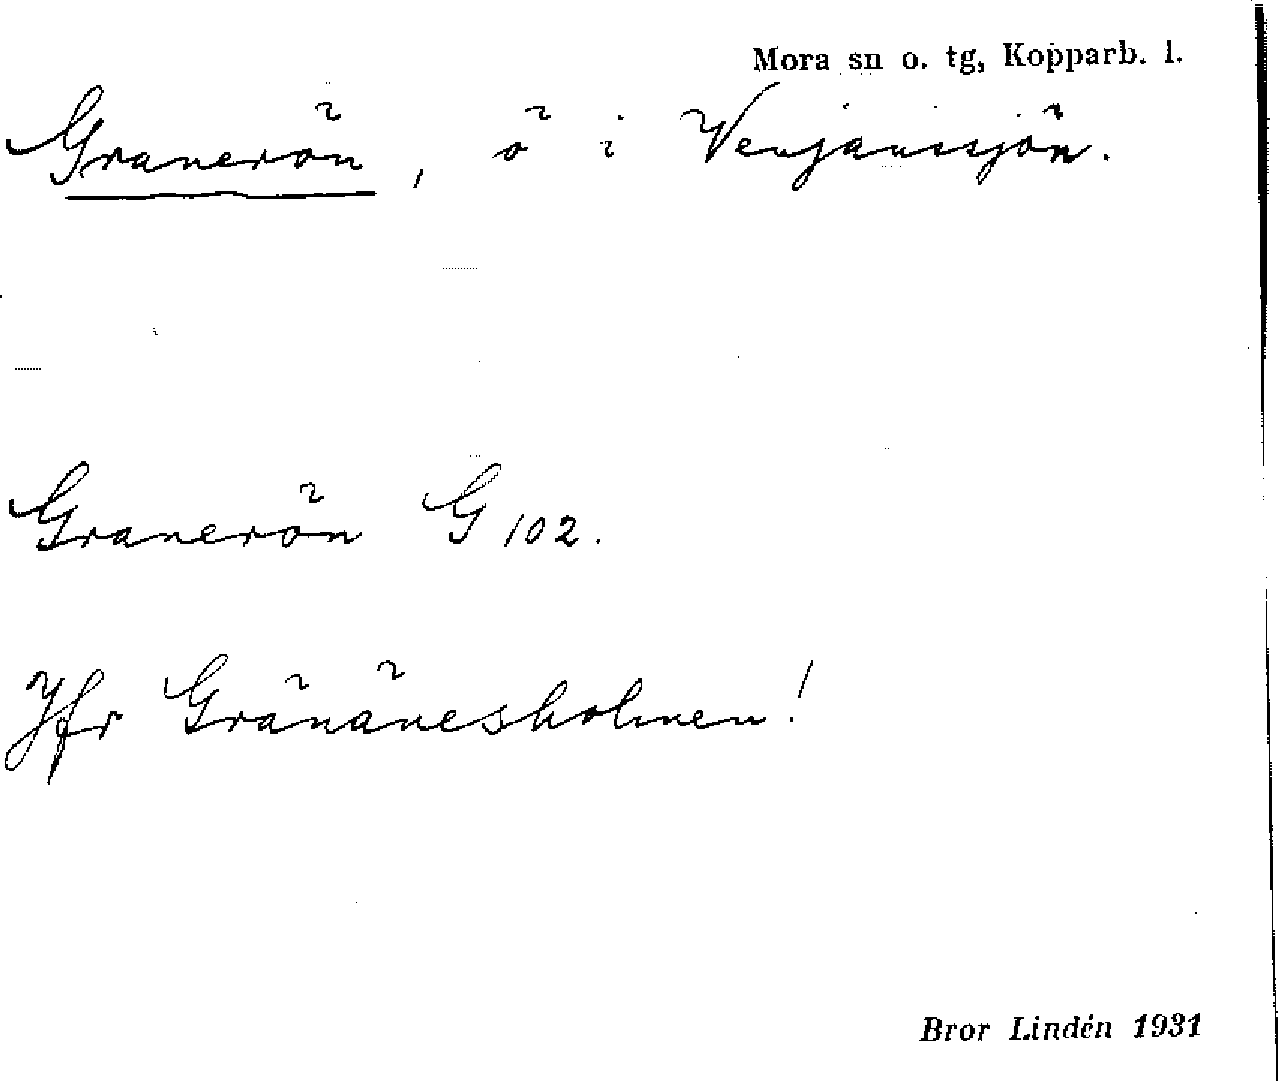 Mora sn o. tg, Kopparb. l.
Granerön, ö i Venjanssjön.
Granerön G 102.
Jfr Gränänesholmen!
Bror Lindén 1931